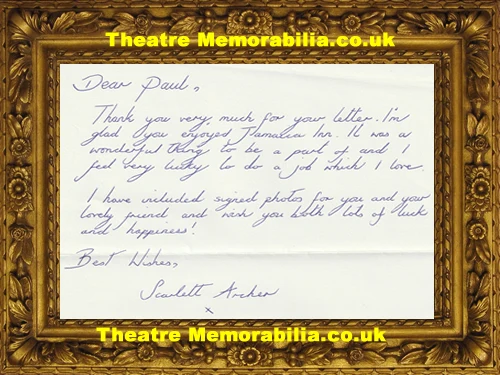 Theatre Memorabilia.co.uk
Dear Paul,
Thank you very much for your letter. I'm
glad you enjoyed Jamaica Inn. It was a
wonderful thing to be a part of and I
feel very lucky to do a job which I love.
I have included signed photos for you and your
lovely friend and wish you both lots of luck
and happiness!
Best Wishes,
Scarlett Archer
x
Theatre Memorabilia.co.uk